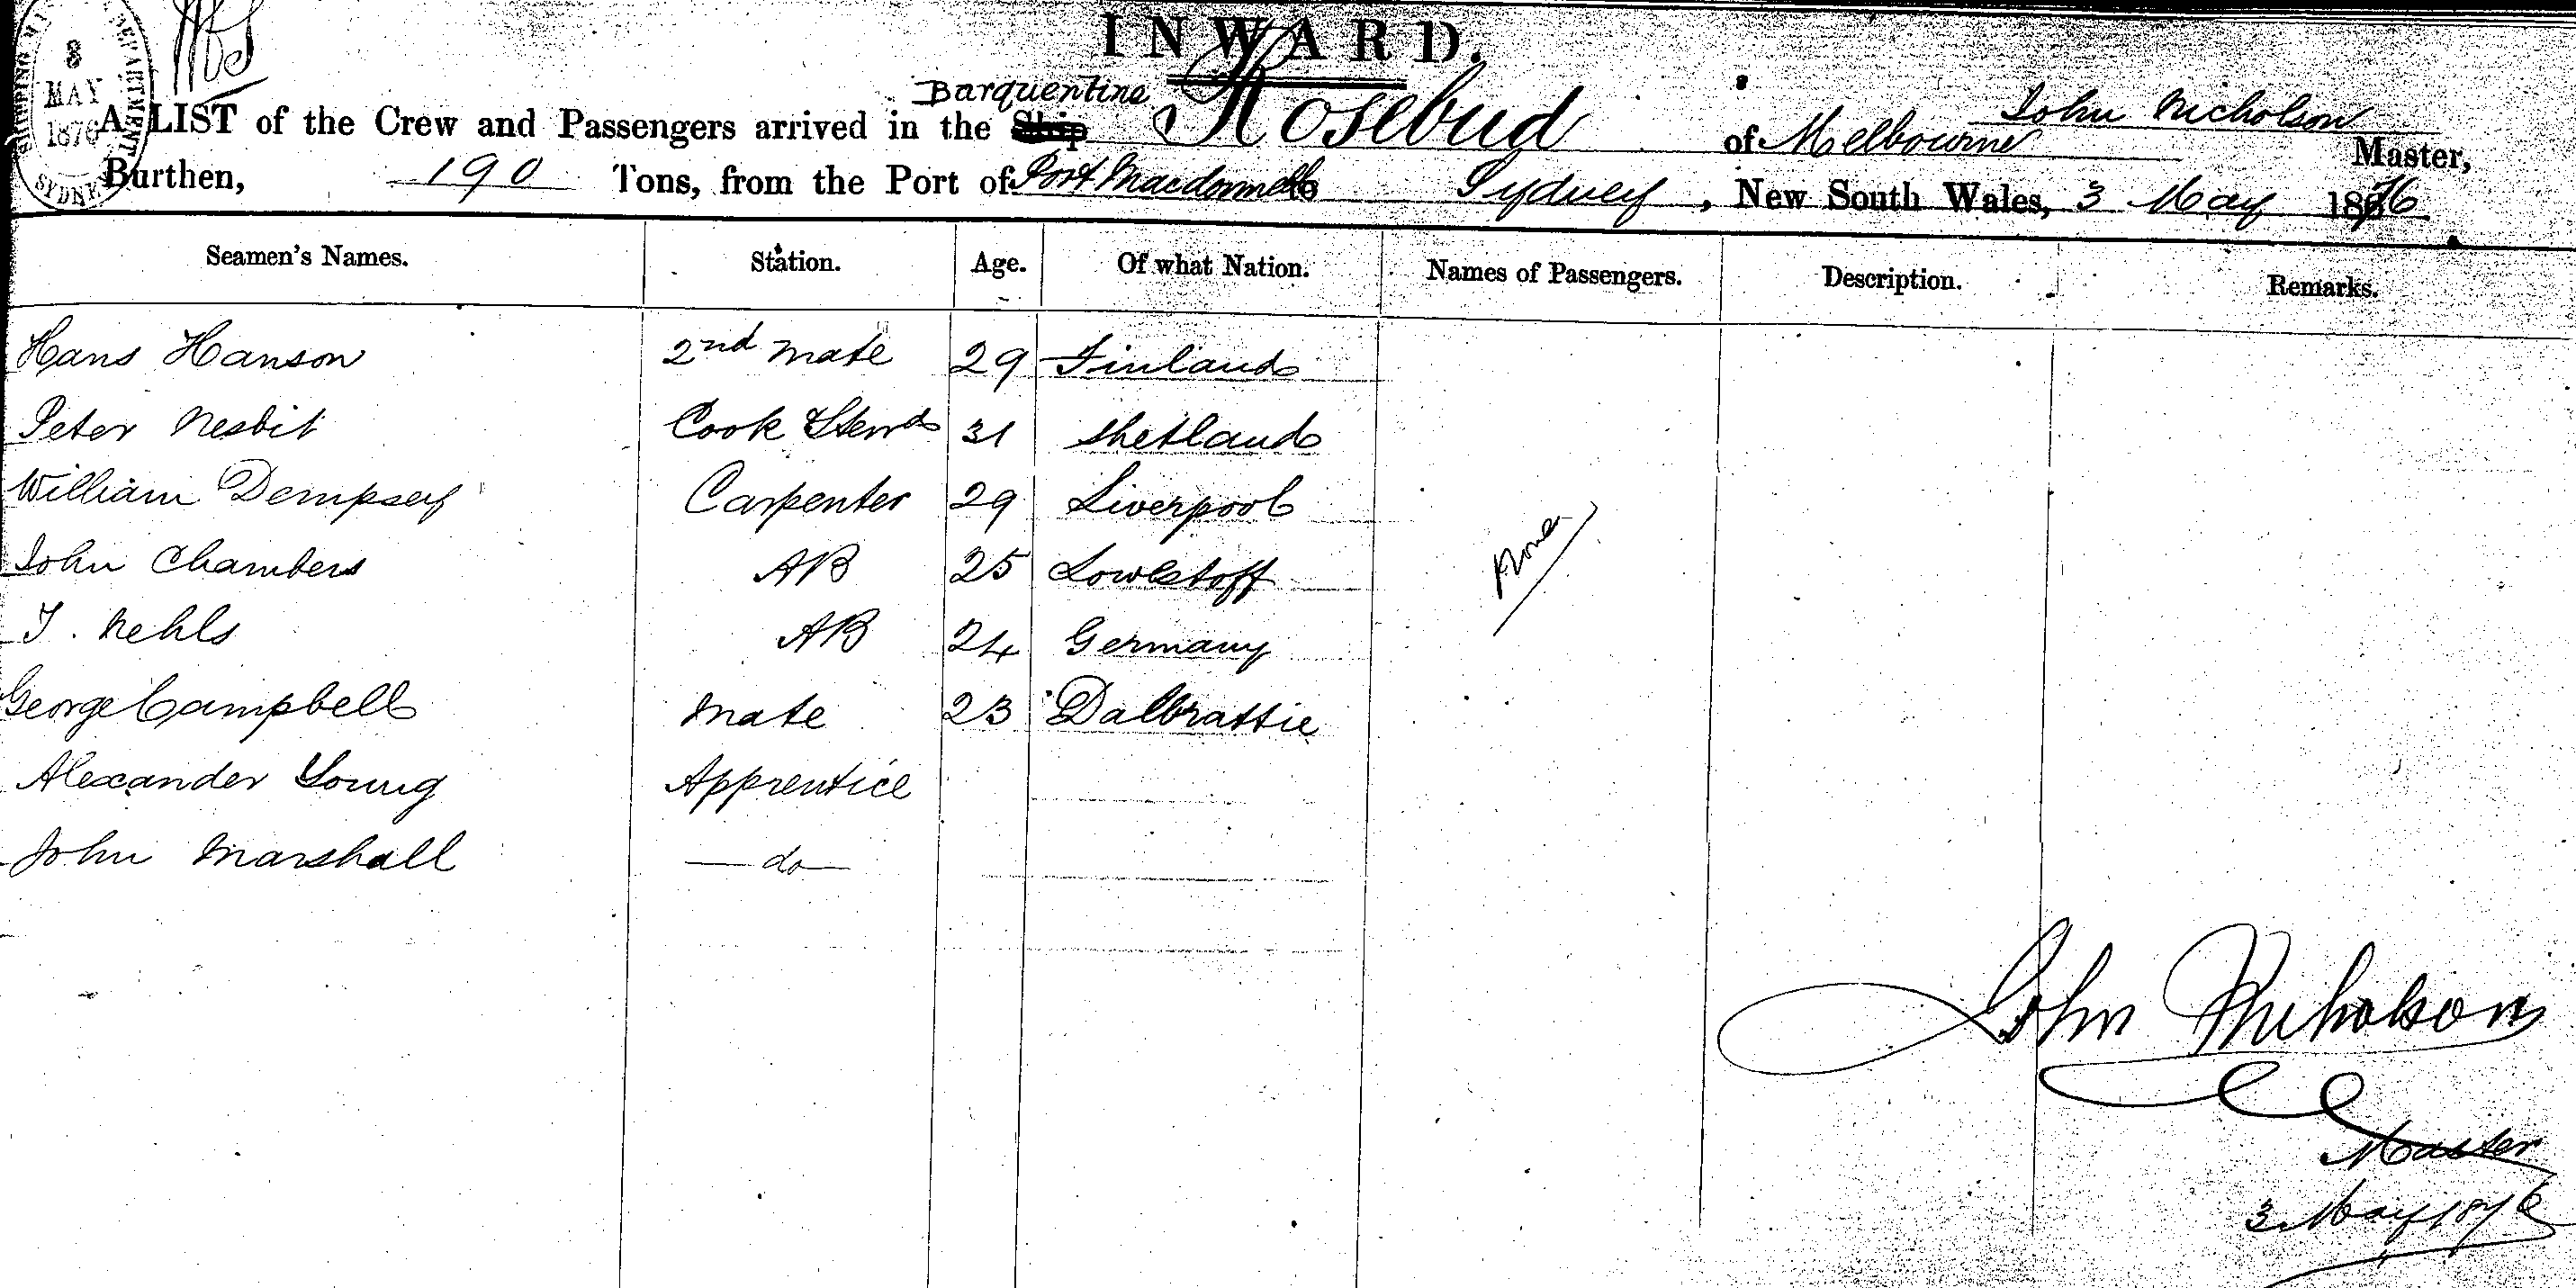 INWARD.
SHIPPING DEPARTMENT SYDNEY
8 MAY 1876
Barquentine
John Nicholson
A LIST of the Crew and Passengers arrived in the Ship Rosebud of Melbourne Master,
Burthen, 190 Tons, from the Port of Port Macdonnell to Sydney, New South Wales, 3 May 1876
Seamen's Names. Station. Age. Of what Nation. Names of Passengers. Description. Remarks.
Hans Hanson 2nd mate 29 Finland
Peter Nesbit Cook & Stewd 31 Shetland
William Dempsey Carpenter 29 Liverpool
John Chambers AB 25 Lowestoff
None
J. Nehls AB 24 Germany
George Campbell Mate 23 Dalbrattie
Alexander Young Apprentice
John Marshall do
John Nicholson
Master
3 May 1876